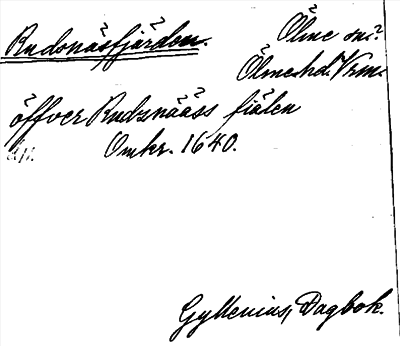 Rudsnäsfjärden.
Ölme sn?
Ölme hd. Vrm.
öffver Rudznääss fiälen
Omkr. 1640.
Gyllenius, Dagbok.